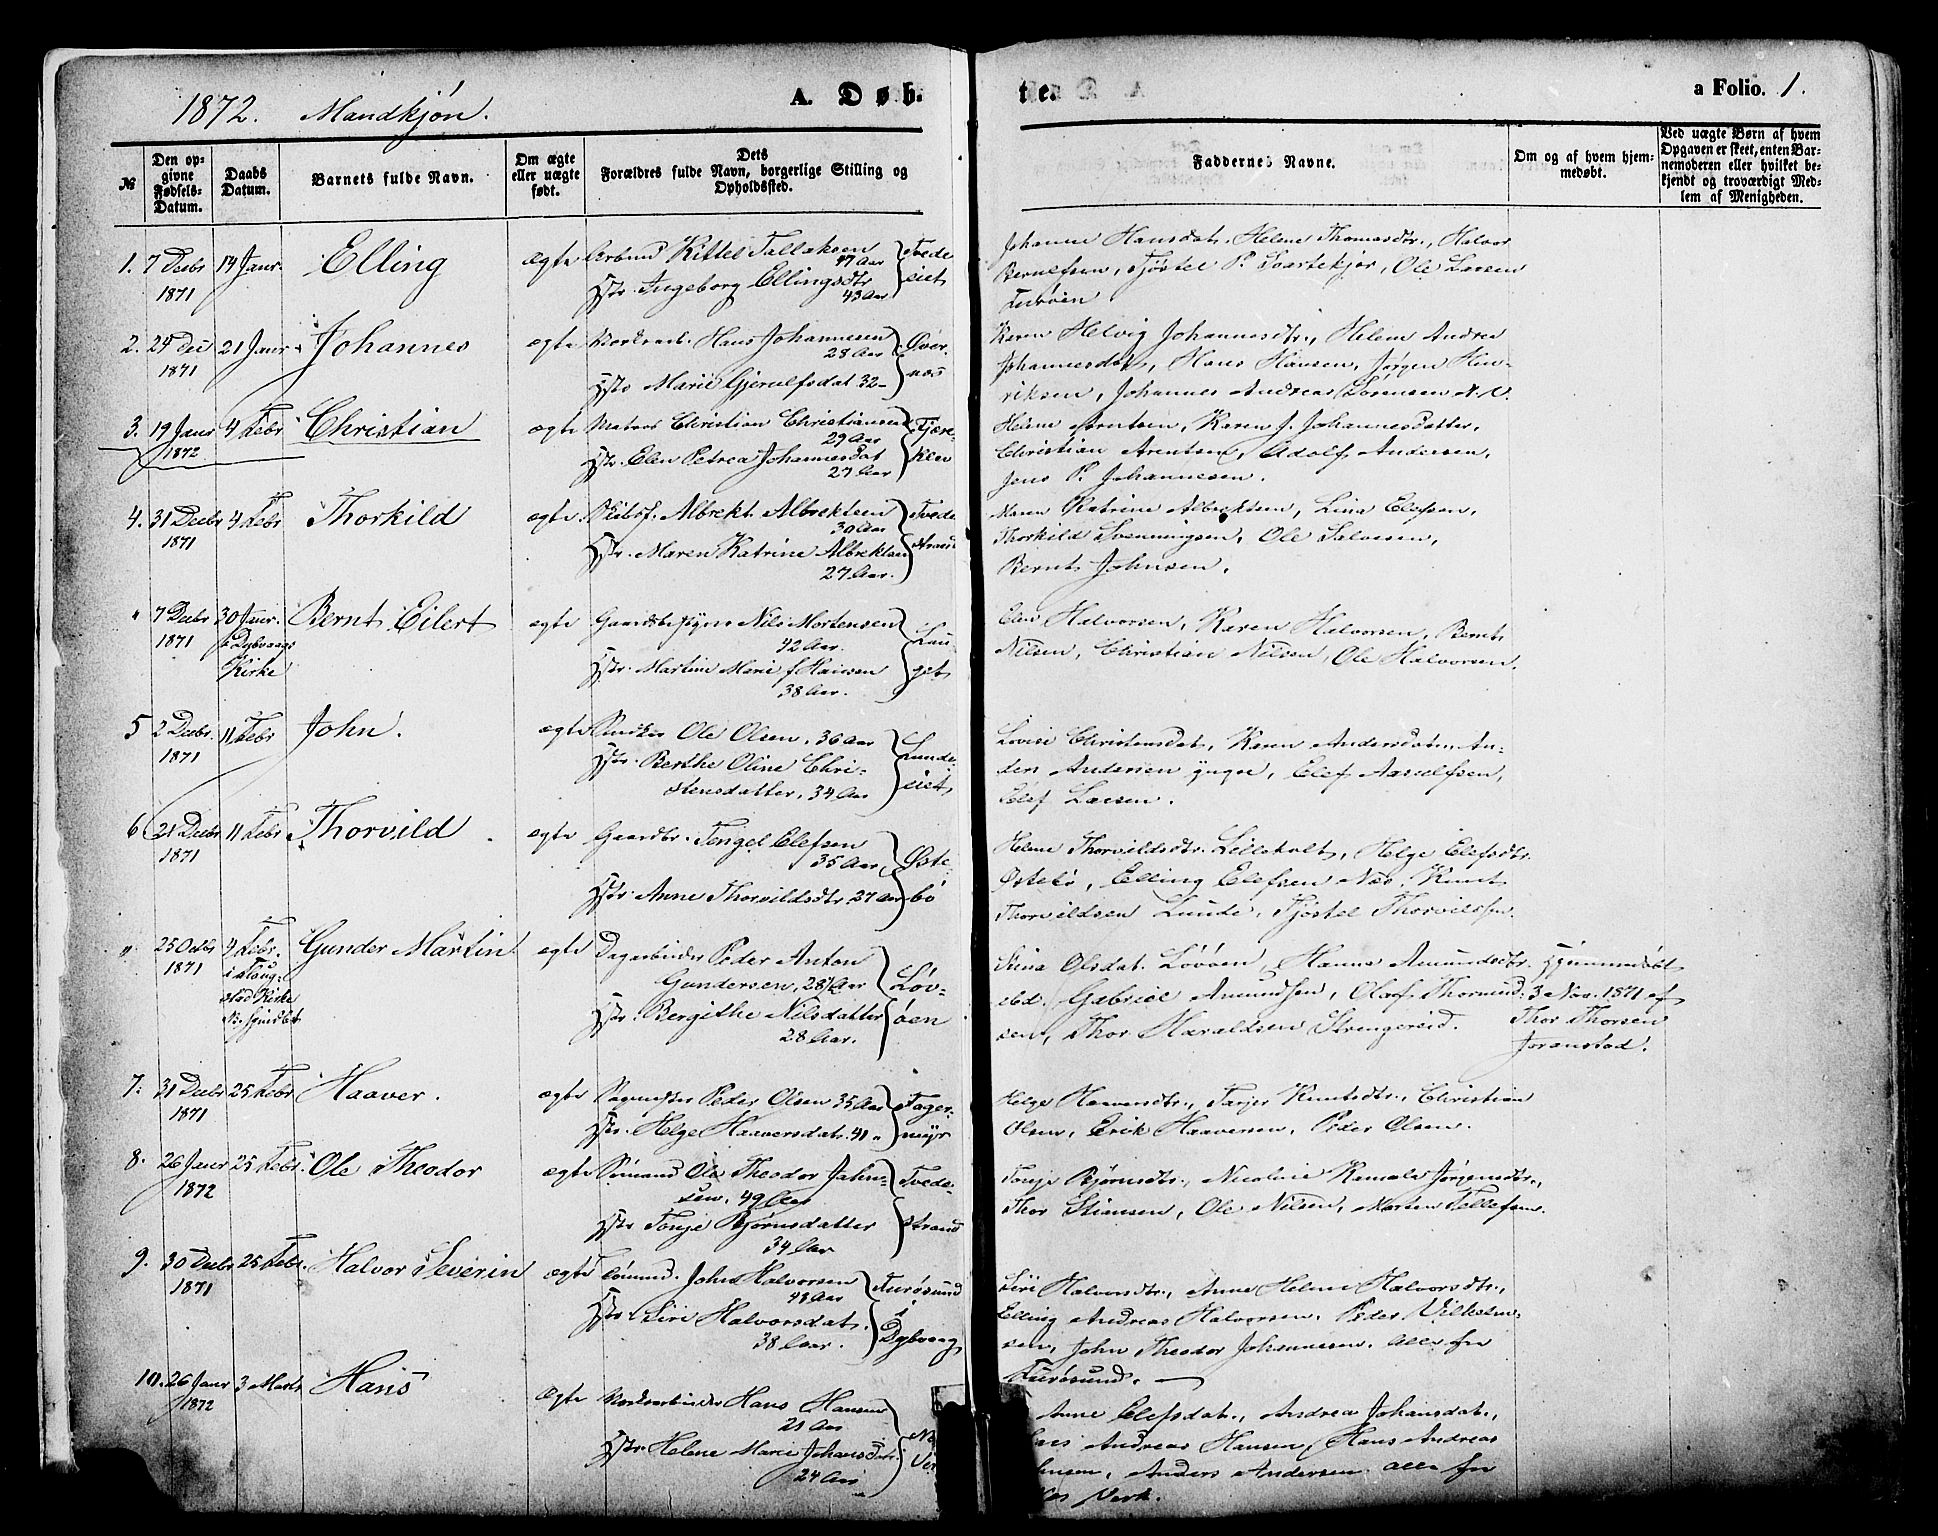 1872. Mandkjøn.
A. Døb-
te.
a Folio. 1.
№
Den op-
givne
Fødsels-
Datum.
Daabs
Datum.
Barnets fulde Navn.
Om ægte
eller uægte
født.
Dets
Forældres fulde Navn, borgerlige Stilling og
Opholdssted.
Faddernes Navne.
Om og af hvem hjem-
medøbt.
Ved uægte Børn af hvem
Opgaven er skeet, enten Bar-
nemoderen eller hvilket be-
kjendt og troværdigt Med-
lem af Menigheden.
1. 7 Decbr 1871
14 Janr.
Elling
ægte
Kittel Tallaksen
47 Aar
Hstr. Ingeborg Ellingsdtr
43 Aar
Tvede
eiet
Johanne Hansdat. Helene Thomasdtr., Halvor
Bernulfsen, Tjøstel P. Svartekjær, Ole Larsen
Furøen
2. 24 Dec 1871
21 Janr
Johannes
ægte
Hans Johannesen
28 Aar
Hstr Marie Gjerulfsdat 32-
Øver-
næs
Karen Helvig Johannesdtr., Helene Andrea
Johannesdat, Hans Hansen, Jørgen Hen-
riksen, Johannes Andreas Sørensen N.V.
3. 19 Janr 1872
4 Febr
Christian
ægte
Matros Christian Christiansen
29 Aar
Hstr. Elen Petrea Johannesdat
27 Aar
Tjære-
klev
Arntsen, Karen J. Johannesdatter,
Christian Arentsen, Adolf Andersen,
Jens P. Johannesen.
4. 31 Decbr 1871
4 Febr
Thorkild
ægte
Skibsf. Albrekt Albrektsen
30 Aar
Hstr. Maren Katrine Albrektsen
27 Aar.
Tvede
strand
Maren Katrine Albrektsen, Lina Elefsen,
Thorkild Svenningsen, Ole Salvesen,
Bernt Johnsen.
" 7 Decbr 1871
30 Janr.
Dybvaags
Kirke
Bernt Eilert
ægte
Nils Mortensen
42 Aar.
Hstr. Martine Marie f. Hansen
38 Aar.
Lau-
get
Halvorsen, Karen Halvorsen, Bernt
Nilsen, Christian Nilsen, Ole Halvorsen.
5 2 Decbr. 1871
11 Febr
John.
ægte
Ole Olsen, 36 Aar
Hstr. Berthe Oline Chri-
stensdatter, 34 Aar
Lunde-
eiet
Lovise Christensdat, Karen Andersdatter, An-
ders Andersen yngre, Elef Aasulfsen,
Elef Larsen.
6 21 Decbr 1871
11 Febr
Thorvild
ægte
Gaardbr. Tengel Elefsen
35 Aar,
Hstr Anne Thorvildsdtr. 27 Aar
Øste-
bø
Helene Thorvildsdtr. Lilleholt, Helge Elefsdtr.
Østebø, Elling Elefsen Næs, Knut
Thorvildsen Lunde, Tjøstel Thorvildsen.
" 25 Octbr 1871
4 Febr.
i Staug-
stad Kirke
Gunder Martin.
ægte
Dagarbeider Peder Anton
Gundersen, 28½ Aar
Hstr. Bergithe Nilsdatter
28 Aar.
Løv-
øen
Olsdat. Løvøen, Hanna Amundsdtr.
Gabriel Amundsen, Olaf Thormod-
sen, Thor Haraldsen Strengereid.
Hjemmedøbt
3 Nov. 1871 af
Thor Thorsen
Joranstad.
7. 31 Decbr 1871
25 Febr
Haaver.
ægte
Sagmester Peder Olsen 35 Aar
Hstr. Helge Haaversdat. 41 "
Fager-
myr
Helge Haaversdtr., Tarjer Knutsdtr., Christian
Olsen, Erik Haaversen, Peder Olsen.
8. 26 Janr 1872
25 Febr.
Ole Theodor
ægte
Sømand Ole Theodor Jahn-
sen, 49 Aar
Hstr Tonje Bjørnsdatter
34 Aar
Tvede-
strand
Tonje Bjørnsdtr., Nicoline Jørgensdtr.,
Thor Stiansen, Ole Nilsen, Morten Tellefsen.
9. 30 Decbr 1871
25 Febr.
Halvor Severin
ægte
Sømand. John Halvorsen
48 Aar
Hstr. Siri Halvorsdat.
38 Aar.
Furøsund
i
Dybvaag
Siri Halvorsdtr., Anne Helene Halvorsdtr.,
Elling Andreas Halvorsen. Peder Vilhelm-
sen, John Theodor Johannesen. Alle fra
Furøsund.
10. 26 Janr 1872
3 Marts
Hans
Ægte
Hans Hansen
25 Aar
Hstr. Helene Marie Johansdatr.
24 Aar
Anne Elefsdat., Andrea Johansdat.,
Andreas Hansen, Hans Andreas
Anders Andersen. Alle fra
Verk.